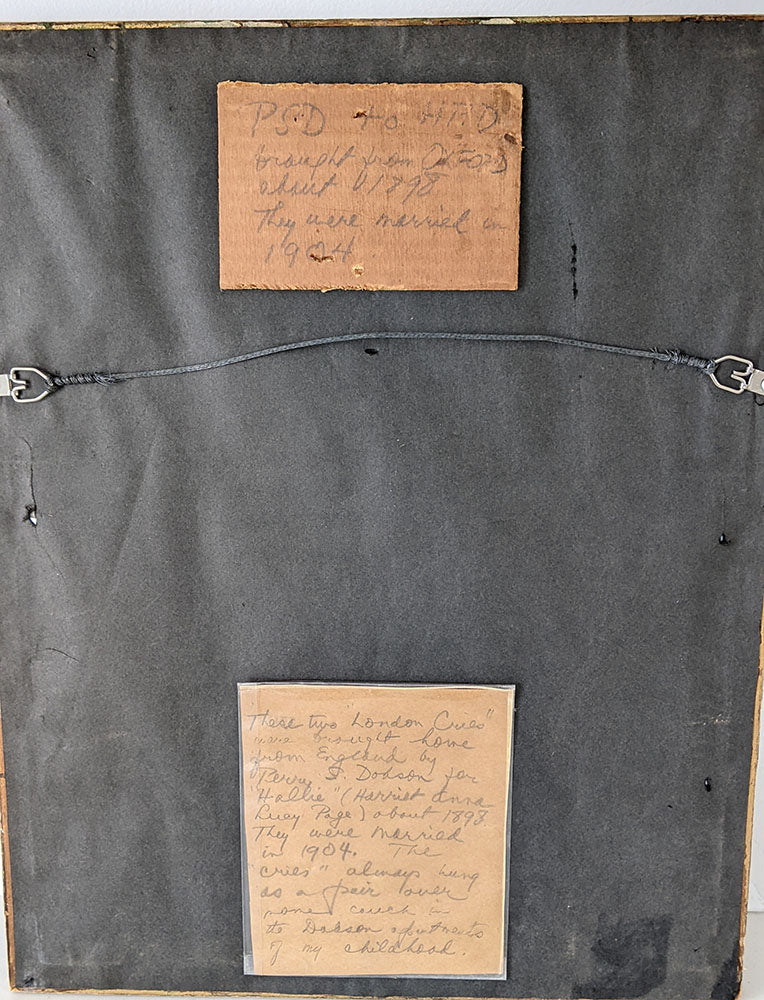 PSD to HPD
brought from OXFORD
about 1898
They were married in
1904
These two "London Cries"
were brought home
from England by
Perry S. Dobson for
"Hallie" (Harriet Anna
Lucy Page) about 1898.
They were married
in 1904. The
"cries" always hung
as a pair over
some couch in
the Dobson apartments
of my childhood.